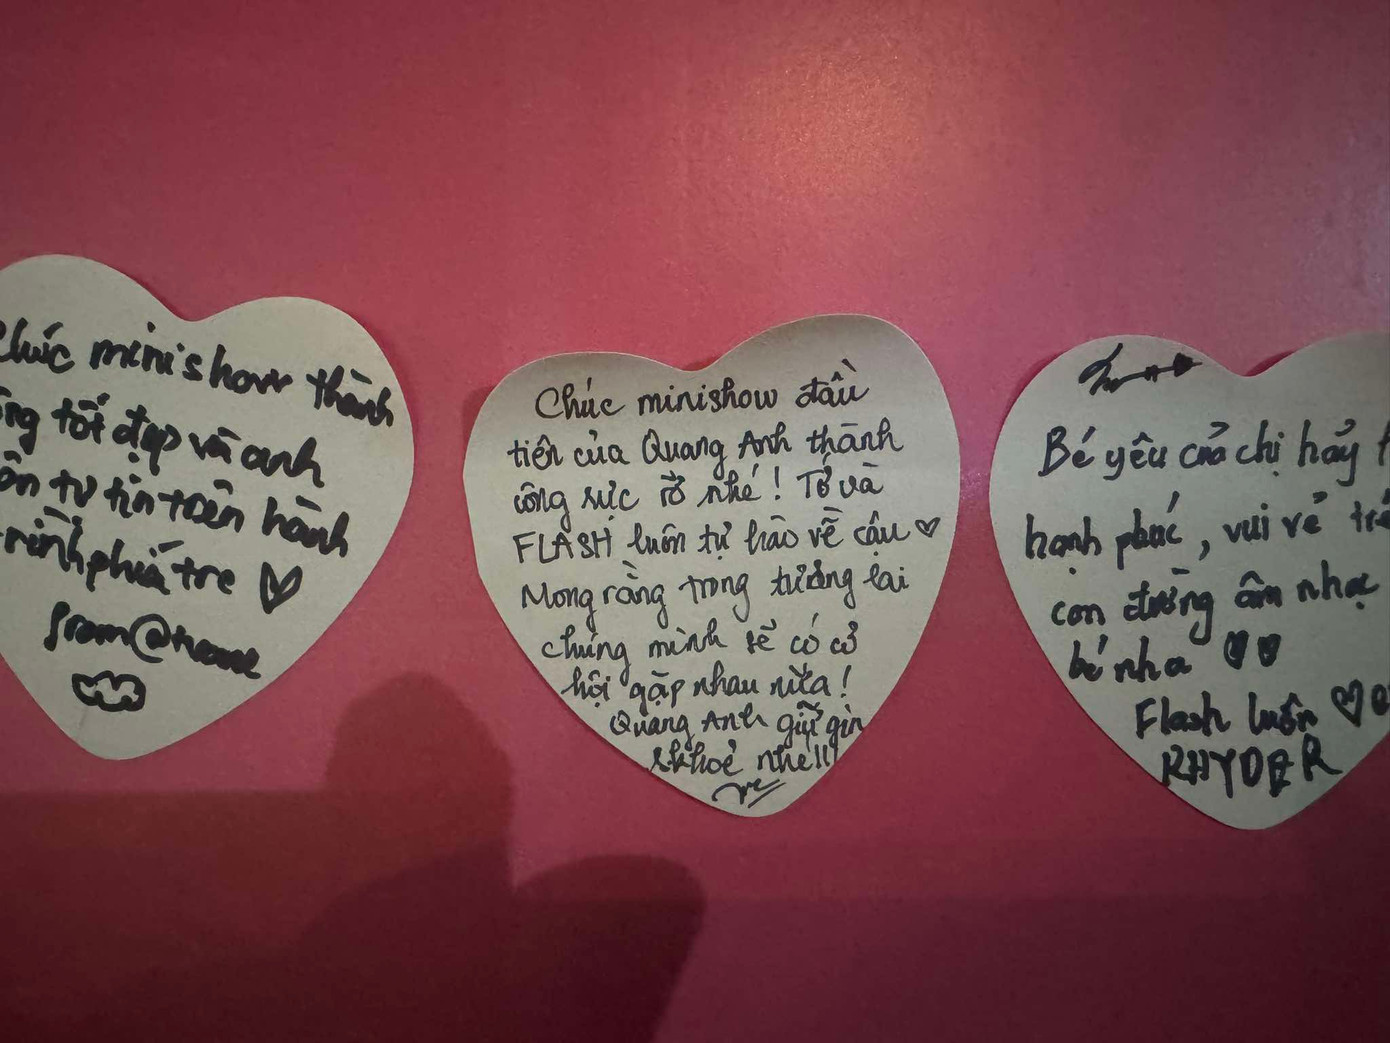 Chúc minishow thành
tốt đẹp và anh
tự tin toàn hành
phía tre ♡
from@
Chúc minishow đầu
tiên của Quang Anh thành
công rực rỡ nhé! Tớ và
FLASH luôn tự hào về cậu ♡
Mong rằng trong tương lai
chúng mình sẽ có cơ
hội gặp nhau nữa!
Quang Anh giữ gìn
skhoẻ nhé!!!
Bé yêu của chị hãy
hạnh phúc, vui vẻ trên
con đường âm nhạc
bé nha ♡♡
Flash luôn ♡
RHYDER